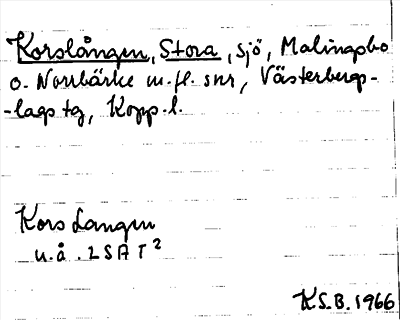 Korslången, Stora, sjö, Malingsbo
o. Norrbärke m.fl. snr, Västerbergs-
-lags tg, Kopp.l.
Kors Langen
u.å. LSA T²
K.S.B. 1966